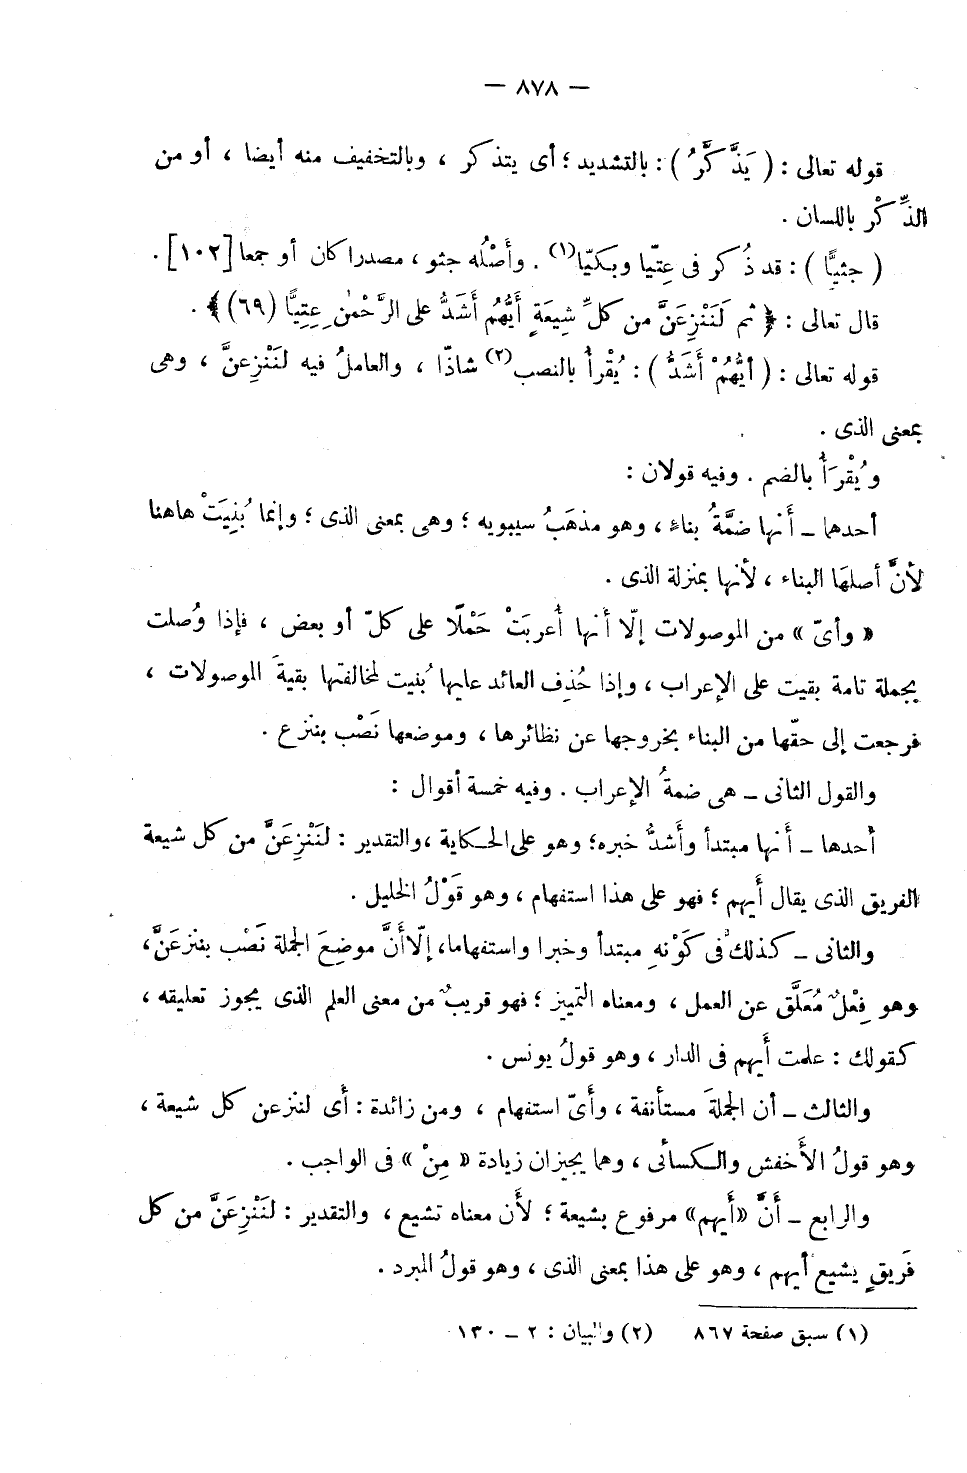 — ٨٧٨ —
قوله تعالى : ( يَذَّكَّرُ ) : بالتشديد ؛ أى يتذكر ، وبالتخفيف منه أيضا ، أو من
الذِّكْر باللسان .
( جثيًّا ) : قد ذُكر فى عِتيّا وبكيّا(١) . وأَصْلُه جثو ، مصدرا كان أو جمعا [١٠٢] .
قال تعالى : ﴿ ثم لَنَنْزِعَنَّ من كلِّ شِيعَةٍ أَيُّهُم أَشَدُّ على الرَّحْمٰنِ عِتِيًّا (٦٩)﴾ .
قوله تعالى : ( أَيُّهُمْ أَشَدُّ ) : يُقْرأُ بالنصب(٢) شاذّا ، والعاملُ فيه لنَنْزِعنَّ ، وهى
بمعنى الذى .
ويُقْرَأُ بالضم . وفيه قولان :
أحدهما ـ أَنها ضمَّةُ بناءٍ ، وهو مذهَبُ سيبويه ؛ وهى بمعنى الذى ؛ وإنما بُنِيَتْ هاهنا
لأنَّ أصلهَا البناء ، لأنها بمنزلة الذى .
« وأىّ » من الموصولات إلّا أنها أُعربَتْ حَمْلًا على كلّ أو بعض ، فإذا وُصلت
بجملة تامة بقيت على الإعراب ، وإذا حُذِف العائد عليها بُنيت لمخالفتها بقيةَ الموصولات ،
فرجعت إلى حقّها من البناء بخروجها عن نظائرها ، وموضعها نَصْب بننزع .
والقول الثانى ـ هى ضمةُ الإعراب . وفيه خمسة أقوال :
أحدها ـ أَنها مبتدأ وأَشدُّ خبره؛ وهو على الحكاية ،والتقدير : لنَنْزِعَنَّ من كل شيعة
الفريق الذى يقال أَيهم ؛ فهو على هذا استفهام ، وهو قَوْلُ الخليل .
والثانى ـ كذلك فى كَوْنهِ مبتدأ وخبرا واستفهاما، إلّا أَنَّ موضِعَ الجملة نَصْب بننزعَنَّ،
وهو فِعْلٌ مُعَلَّق عن العمل ، ومعناه التمييز ؛ فهو قريبٌ من معنى العلم الذى يجوز تعليقه ،
كقولك : علمت أَيهم فى الدار ، وهو قولُ يونس .
والثالث ـ أن الجملةَ مستأنفة ، وأَىّ استفهام ، ومن زائدة : أى لننزعن كل شيعة ،
وهو قولُ الأَخفش والكسائى ، وهما يجيزان زيادة « مِنْ » فى الواجب .
والرابع ـ أَنَّ «أَيهم» مرفوع بشيعة ؛ لأَن معناه تشيع ، والتقدير : لنَنْزِعَنَّ من كل
فَريقٍ يشيع أيهم ، وهو على هذا بمعنى الذى ، وهو قولُ المبرد .
(١) سبق صفحة ٨٦٧ (٢) والبيان : ٢ ـ ١٣٠